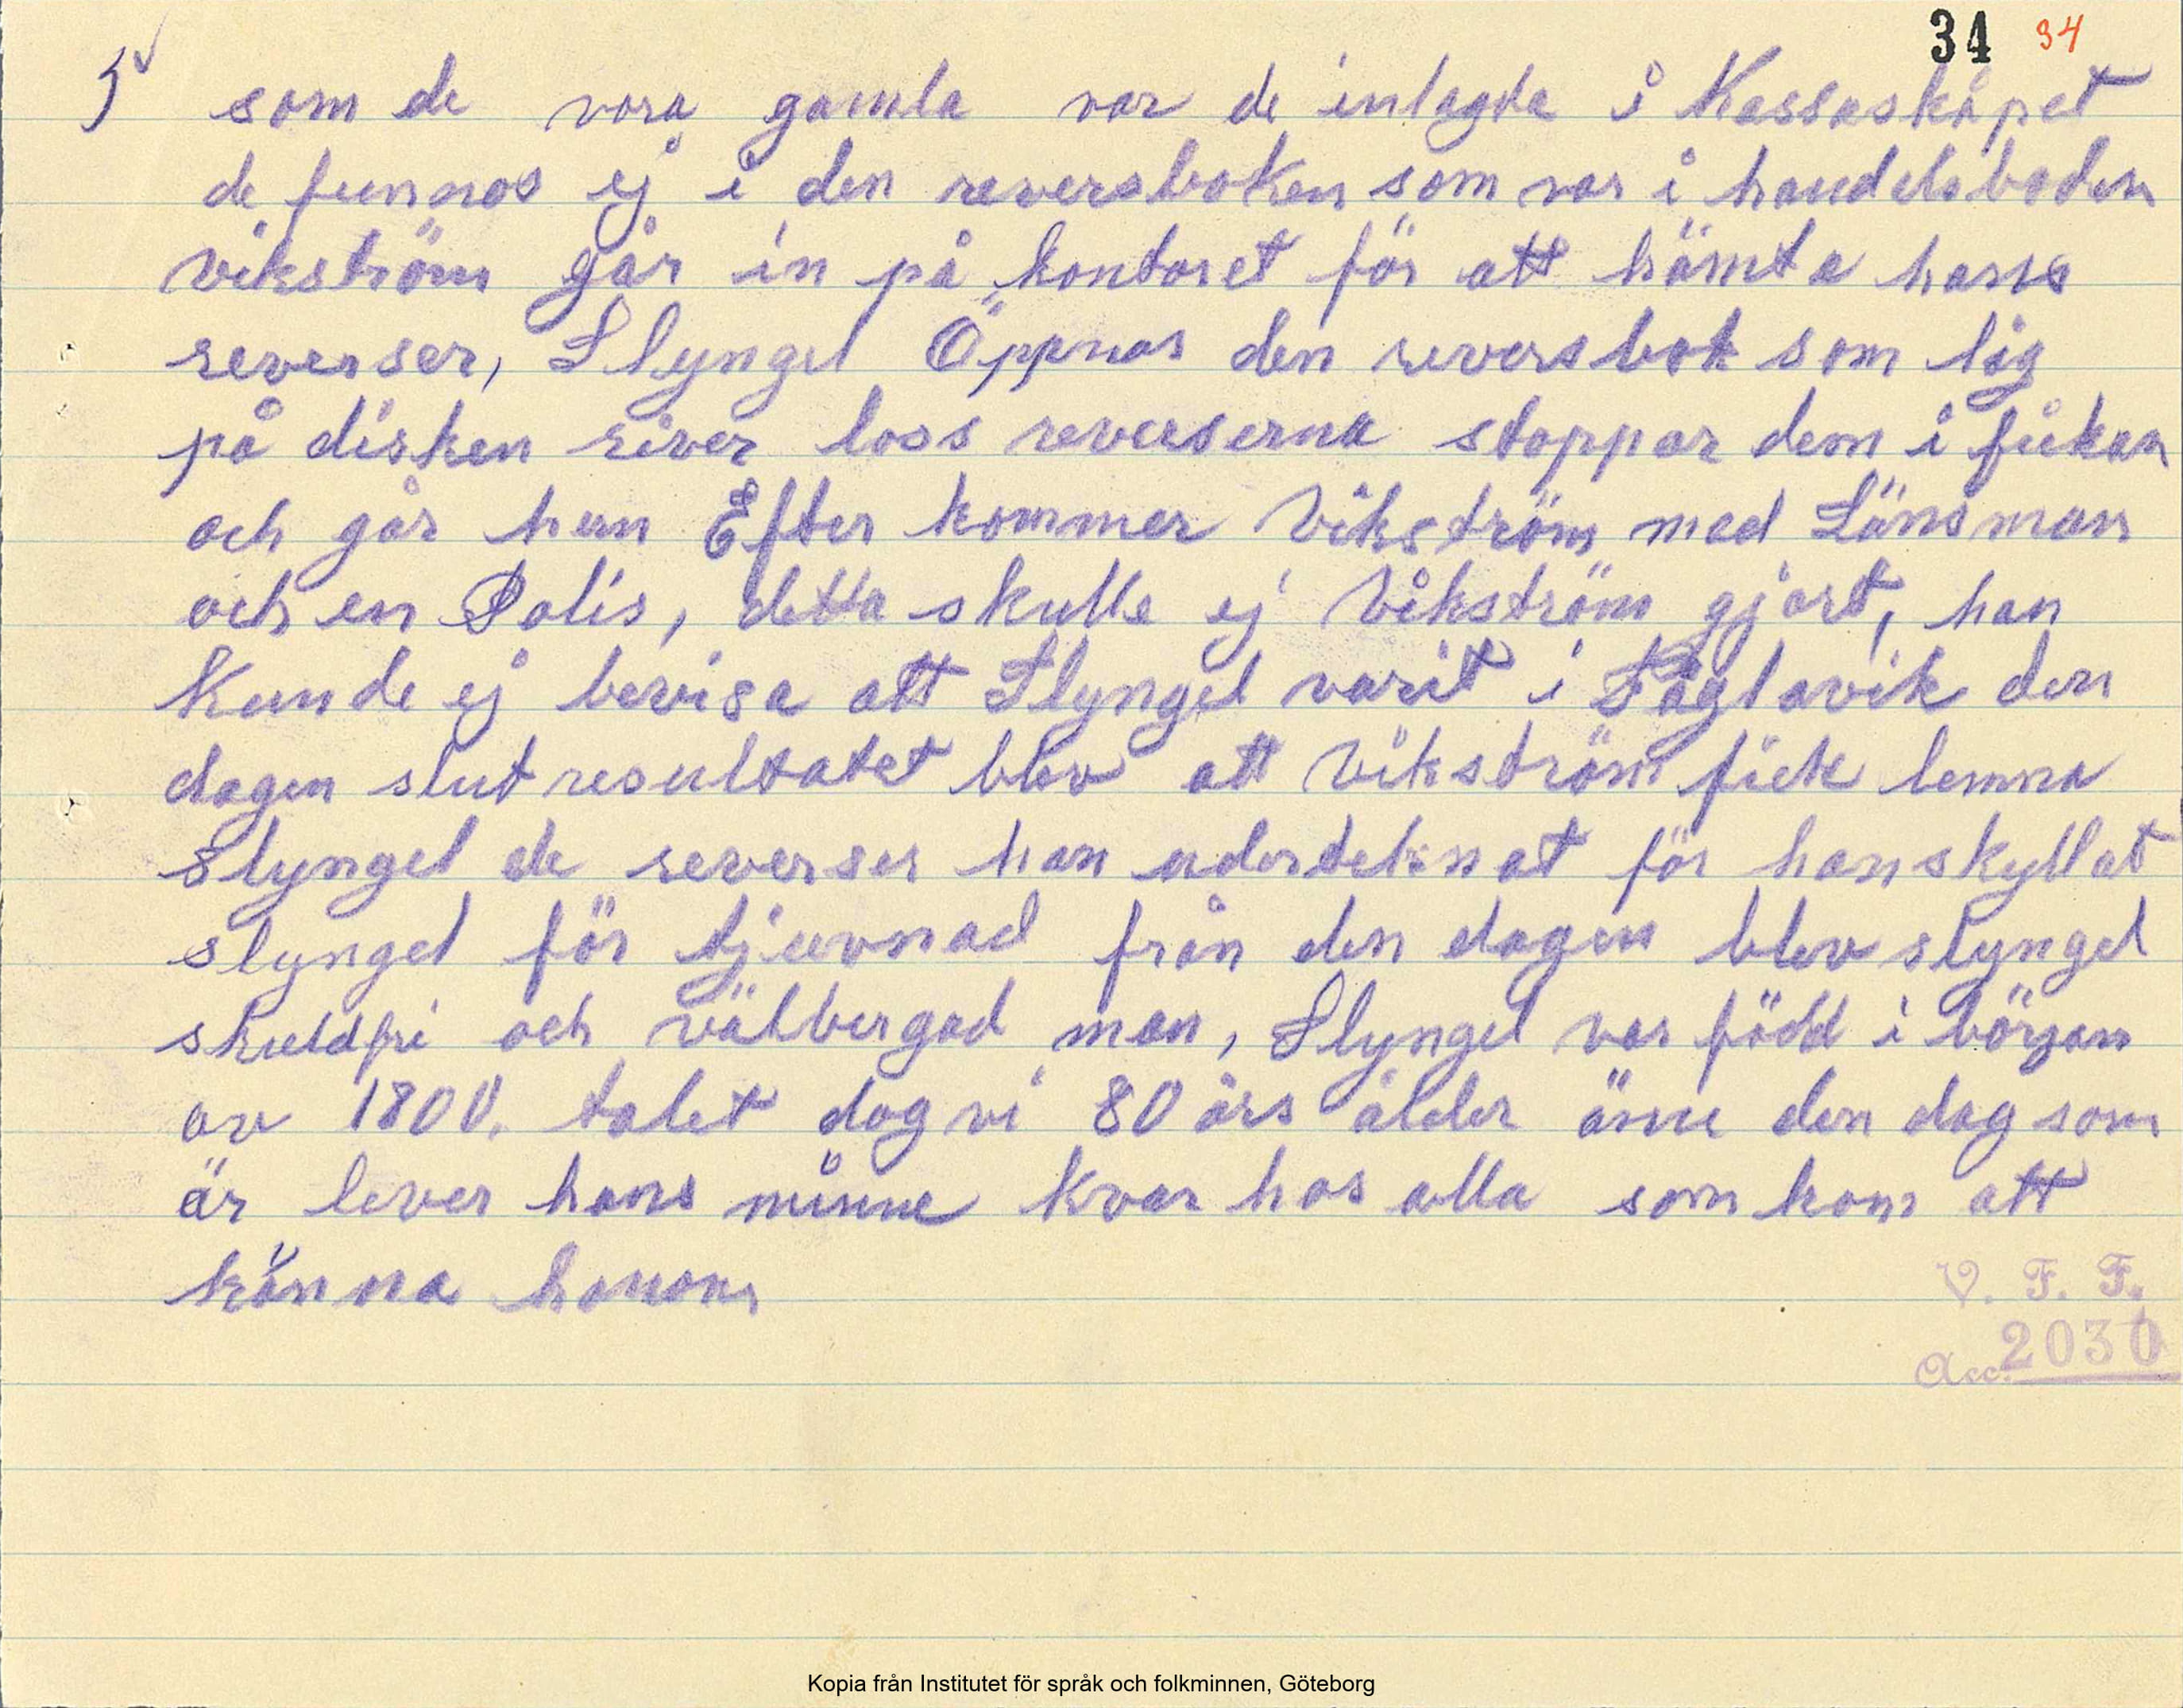 34 34
5 som de vora gamla var de inlagda i Kassaskåpet
de funnos ej i den reversboken som var i handelsboden
vikström går in på kontoret för att hämta hans
reverser, Slyngel Öppnar den reversbok som låg
på disken river loss reverserna stoppar dem i fickan
och går hem Efter kommer Vikström med Länsman
och en Polis, detta skulle ej Vikström gjort, han
Kunde ej bevisa att Slyngel varit i Fåglavik den
dagen slutresultatet blev att Vikström fick lemna
Slyngel de reverser han underteknat för han skyllat
slyngel för tjuvnad från den dagen blev slyngel
skuldfri och välbergad man, Slyngel var född i början
av 1800. talet dog vi 80 års ålder änu den dag som
är lever hans minne kvar hos alla som kom att
känna honom
V. F. F.
Acc. 2030
Kopia från Institutet för språk och folkminnen, Göteborg